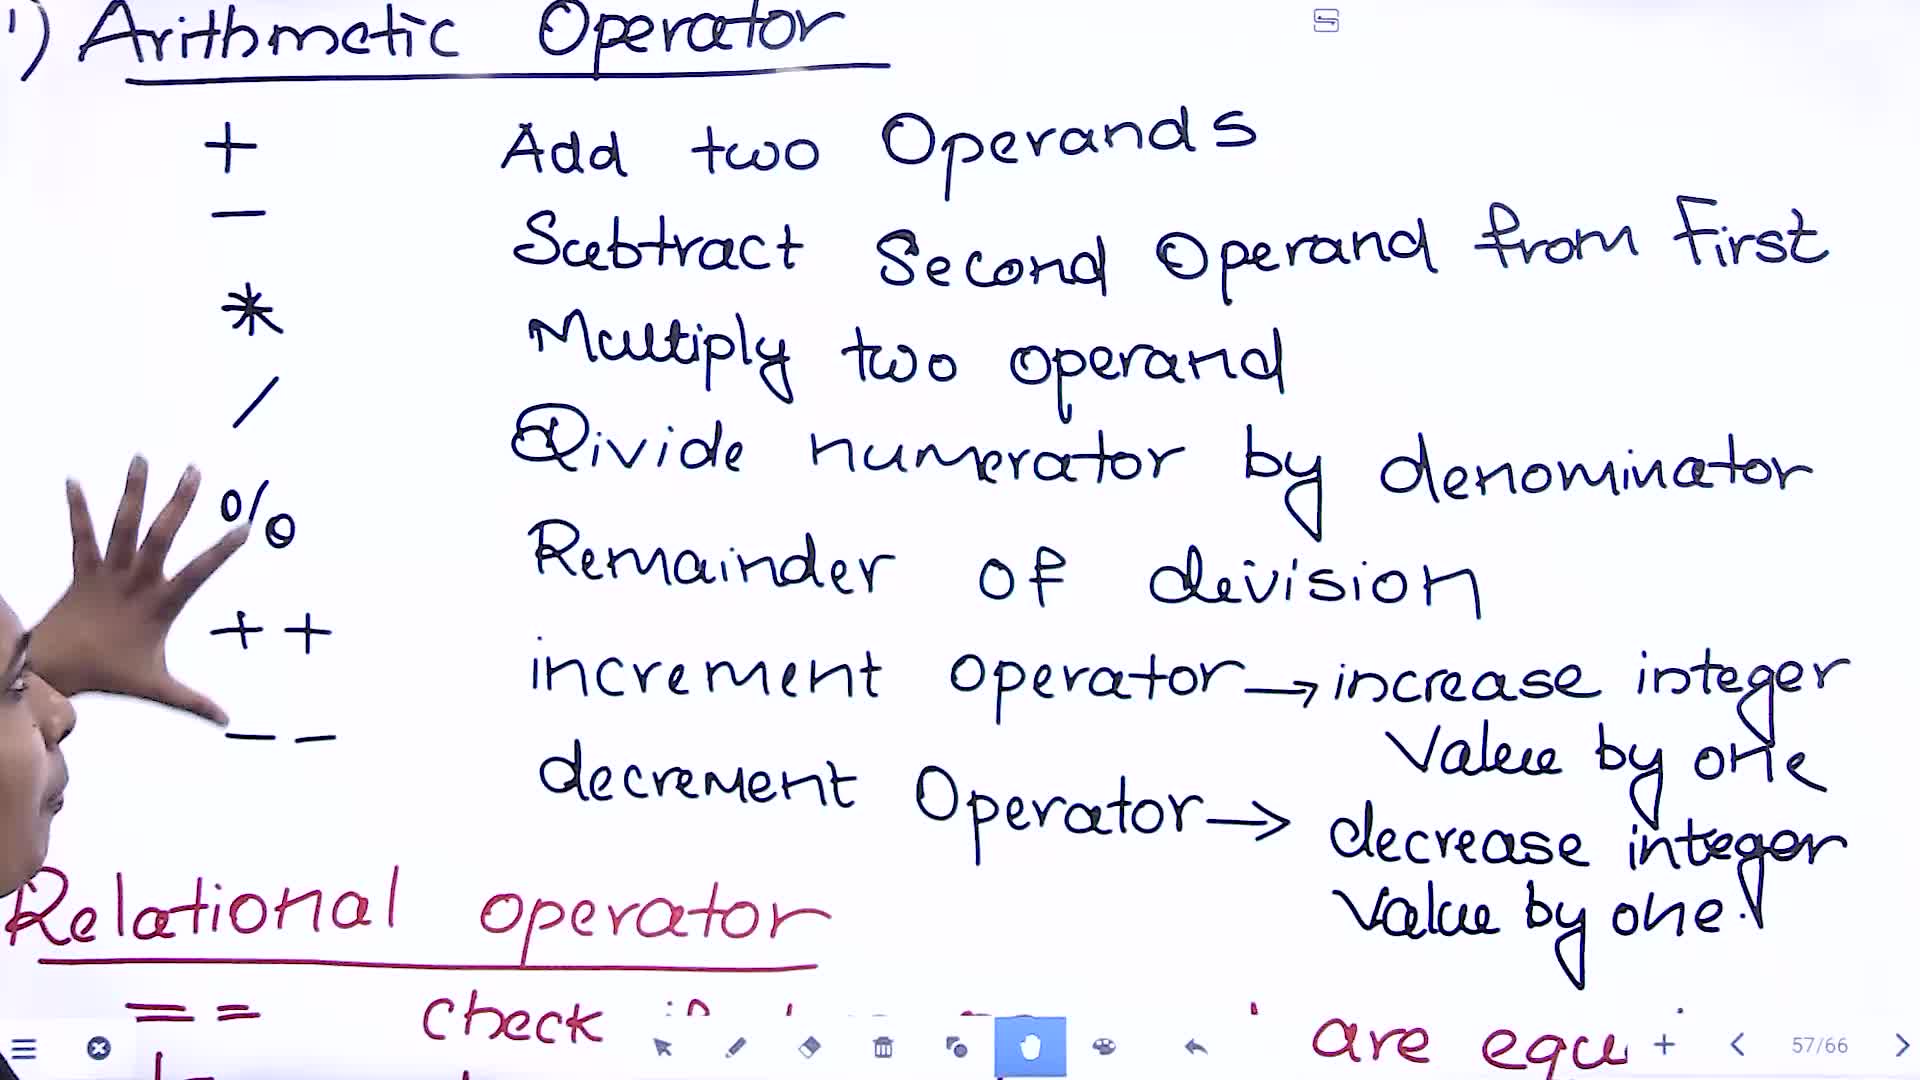 1) Arithmetic Operator
+ Add two Operands
- Subtract Second Operand from First
* Multiply two operand
/ Divide numerator by denominator
% Remainder of division
++ increment operator → increase integer
value by one
-- decrement Operator → decrease integer
value by one.
Relational operator
== check are equ
57/66